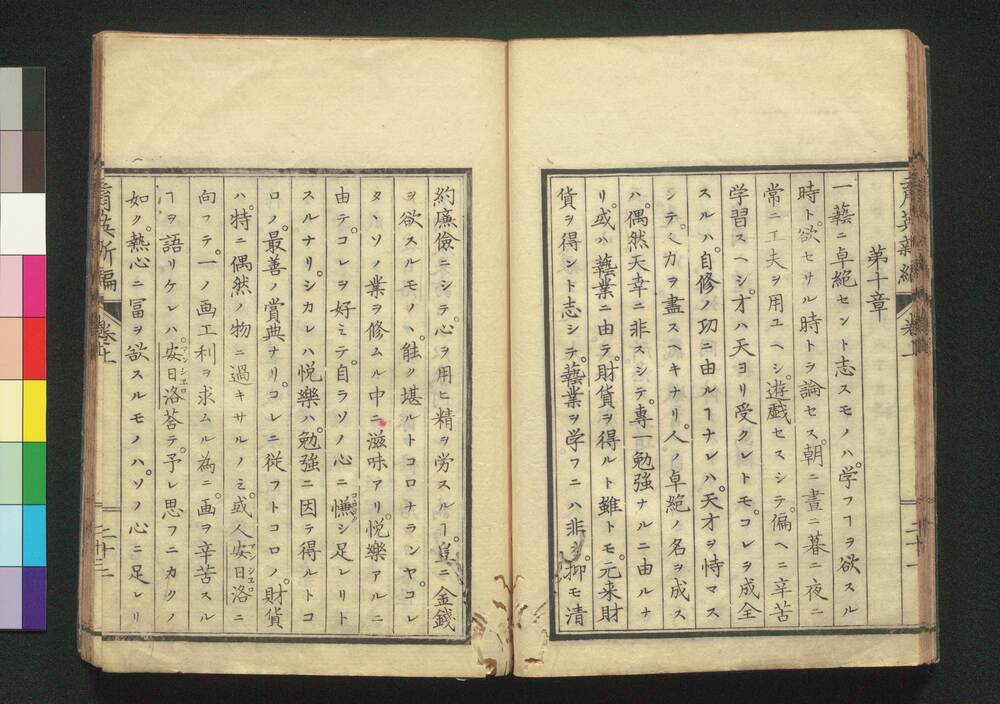 第十章
一藝ニ卓絶セント志スモノハ。学フヿヲ欲スル
時ト。欲セサル時トヲ論セス。朝ニ晝ニ暮ニ夜ニ
常ニ工夫ヲ用ユヘシ。遊戯セスシテ。偏ヘニ辛苦
学習スヘシ。才ハ天ヨリ受クレトモ。コレヲ成全
スルハ。自修ノ功ニ由ルヿナレハ。天才ヲ恃マス
シテ。人力ヲ盡スヘキナリ。人ノ卓絶ノ名ヲ成ス
ハ。偶然天幸ニ非スシテ。專一勉強ナルニ由ルナ
リ。或ハ藝業ニ由テ。財貨ヲ得ルト雖トモ。元来財
貨ヲ得ント志シテ。藝業ヲ学フニハ非ス。抑モ清
約廉儉ニシテ。心ヲ用ヒ精ヲ労スルヿ。豈ニ金錢
ヲ欲スルモノヽ。能ク堪ルトコロナランヤ。コレ
タヽソノ業ヲ修ムル中ニ。滋味アリ。悦樂アルニ
由テ。コレヲ好ミテ。自ラソノ心ニ慊シ足レリト
スルナリ。シカレハ悦樂ハ。勉強ニ因テ得ルトコ
ロノ。最善ノ賞典ナリ。コレニ従フトコロノ。財貨
ハ。特ニ偶然ノ物ニ過キサルノミ。或人安日洛ニ
向フテ。一ノ画工利ヲ求ムル為ニ。画ヲ辛苦スル
ヿヲ語リケレハ。安日洛荅テ。予レ思フニカクノ
如ク。熱心ニ冨ヲ欲スルモノハ。ソノ心ニ足レリ